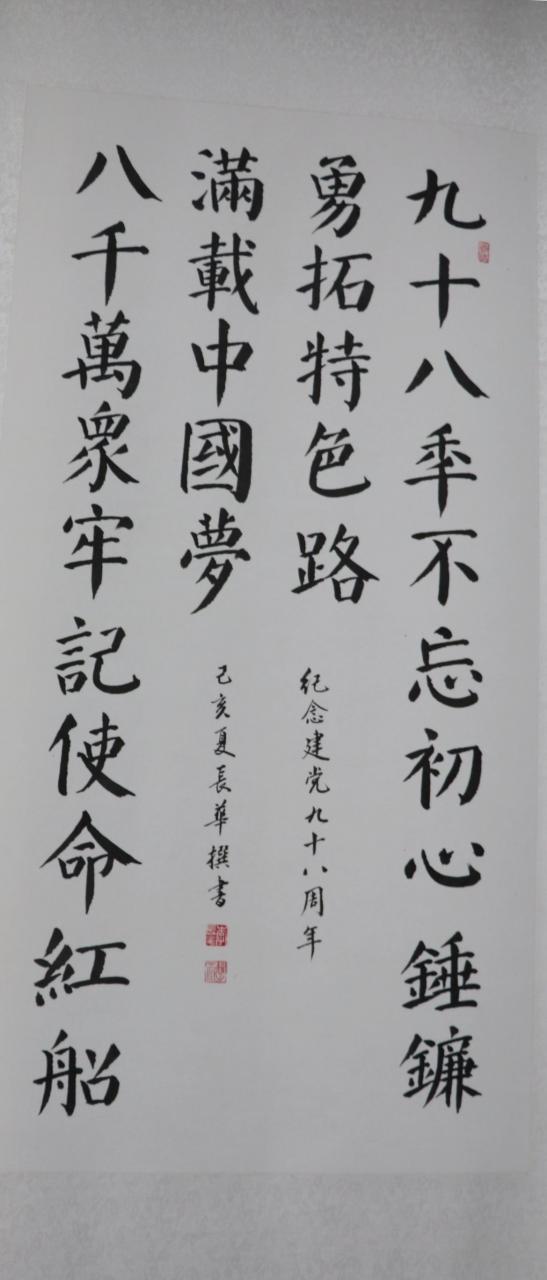 九十八年不忘初心錘鐮
勇拓特色路
紀念建党九十八周年
八千萬衆牢記使命紅船
滿載中國夢
己亥夏長華撰書